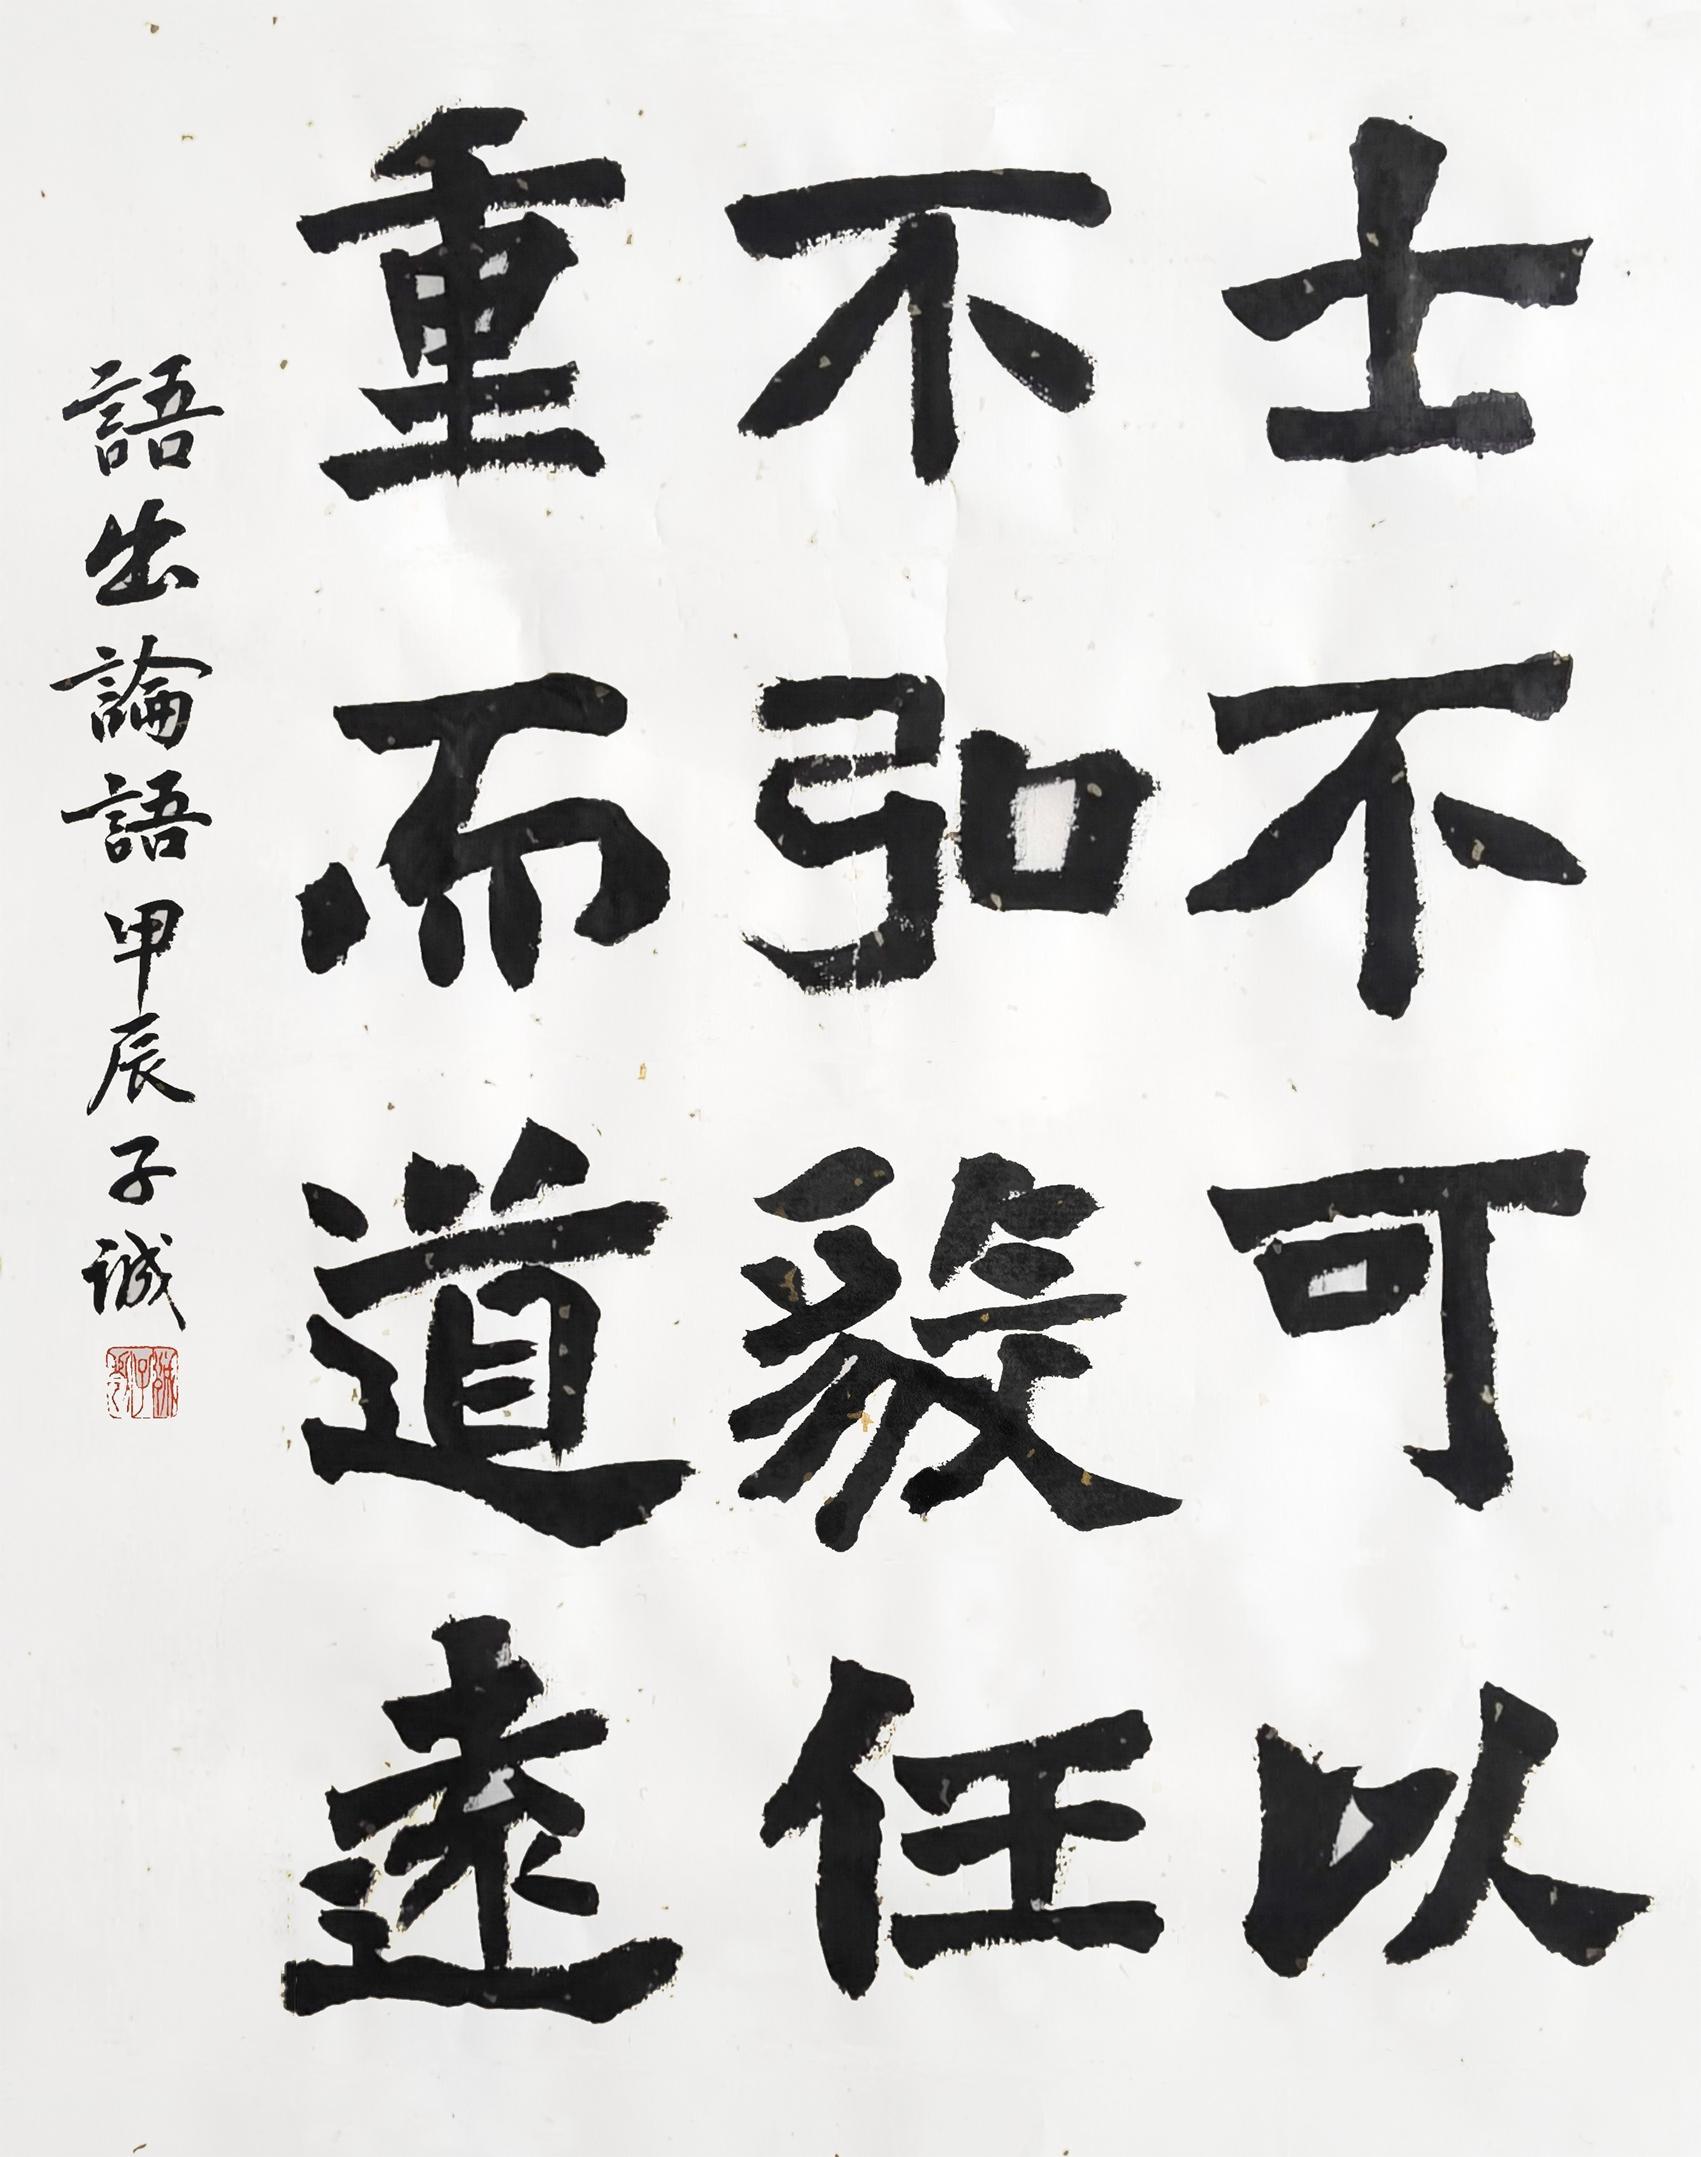 士不可以
不弘毅任
重而道遠
語出論語甲辰子誠